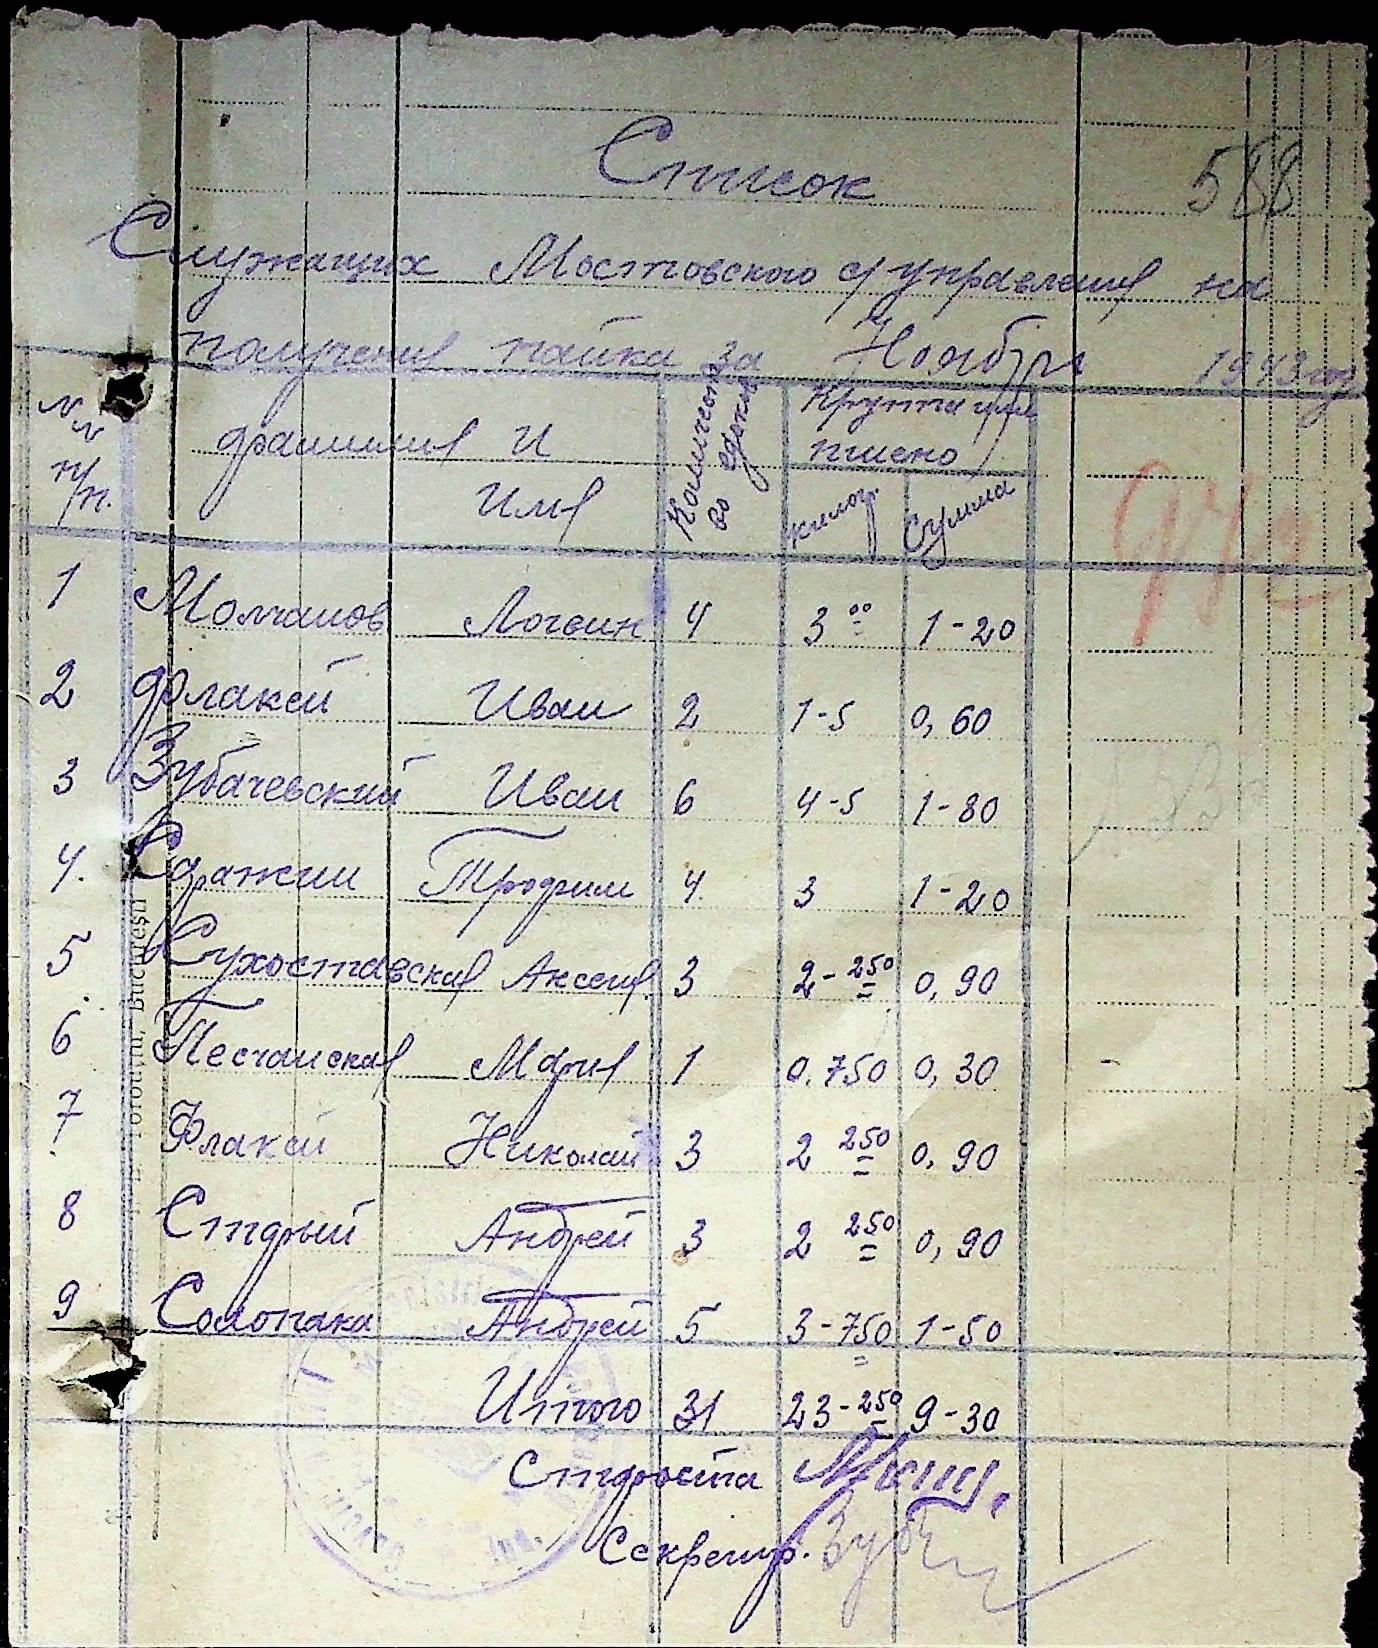 588
Список
Служащих Мостовского с/управления на
получения пайка за Ноябрь 1943 год
№№ п/п. фамилия и Имя Количество едоков Крупа или пшено килогр. Сумма
1 Молчанов Логвин 4 3 00 1-20
2 Флакей Иван 2 1-5 0,60
3 Зубачевский Иван 6 4-5 1-80
4. Сражин Трофим 4. 3 1-20
5 Сухоставская Аксения 3 2-250 0,90
6 Песчанская Мария 1 0.750 0,30
7 Флакей Николай 3 2 250 0,90
8 Старый Андрей 3 2 250 0,90
9 Солопака Андрей 5 3-750 1-50
Итого 31 23-250 9-30
Староста
Секретар.
București